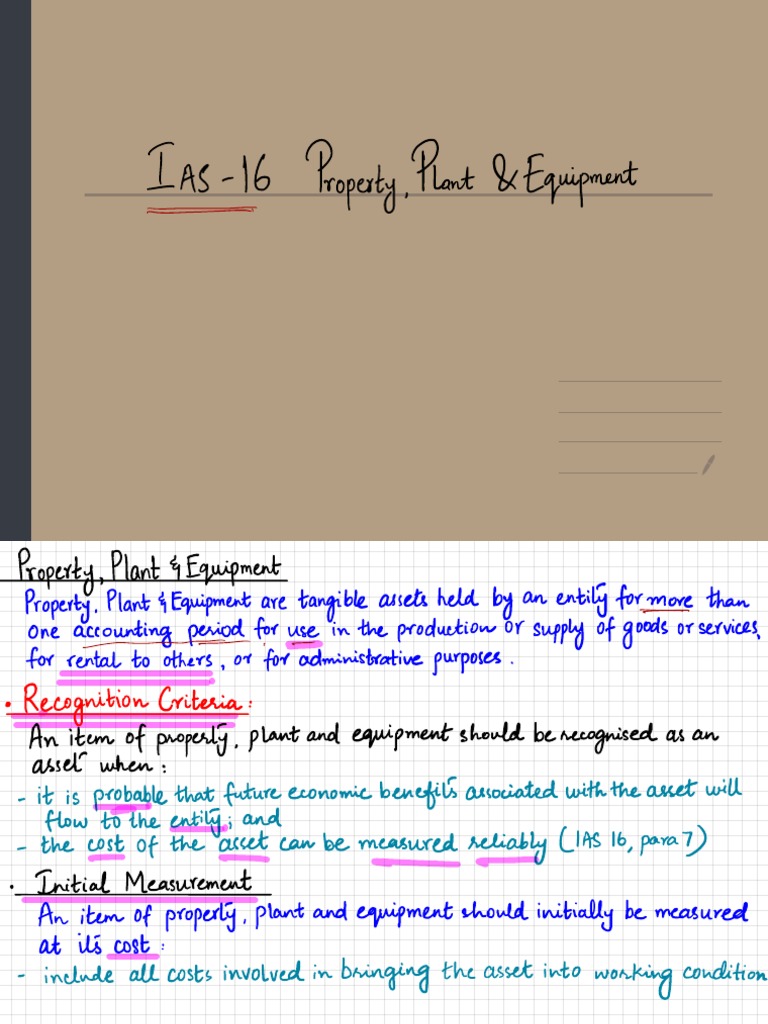 IAS-16 Property, Plant & Equipment
Property, Plant & Equipment
Property, Plant & Equipment are tangible assets held by an entity for more than
one accounting period for use in the production or supply of goods or services,
for rental to others, or for administrative purposes.
• Recognition Criteria:
An item of property, plant and equipment should be recognised as an
asset when:
- it is probable that future economic benefits associated with the asset will
flow to the entity; and
- the cost of the asset can be measured reliably (IAS 16, para 7)
• Initial Measurement
An item of property, plant and equipment should initially be measured
at its cost:
- include all costs involved in bringing the asset into working condition